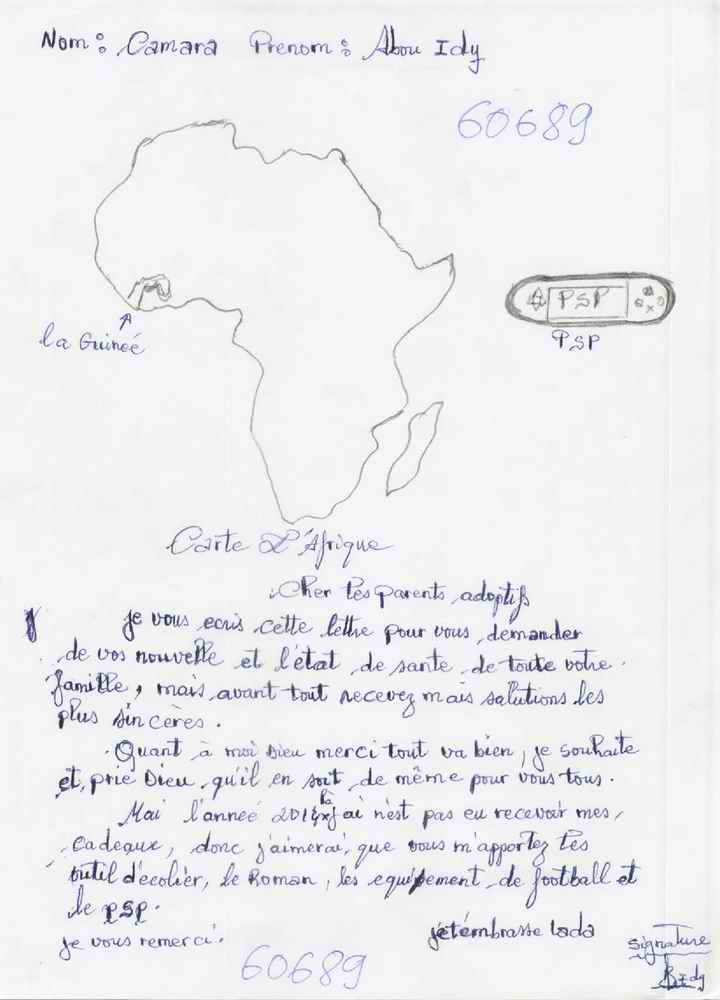 Nom: Camara Prenom: Abou Idy
60689
PSP
PSP
la Guineé
Carte D'Afrique
Cher les parents adoptifs
je vous ecris cette lettre pour vous demander
de vos nouvelle et l'état de sante de toute votre
famille, mais avant tout recevez mais salutions les
plus sincères.
Quant à moi Dieu merci tout va bien, je souhaite
et prie Dieu qu'il en soit de même pour vous tous.
Mai l'anneé j'ai n'est pas eu recevoir mes
cadeaux, donc j'aimerai que vous m'apportez les
outil d'écolier, le Roman, les equipement de football et
le PSP.
je vous remerci. jetémbrasse lada
signature
Idy
60689